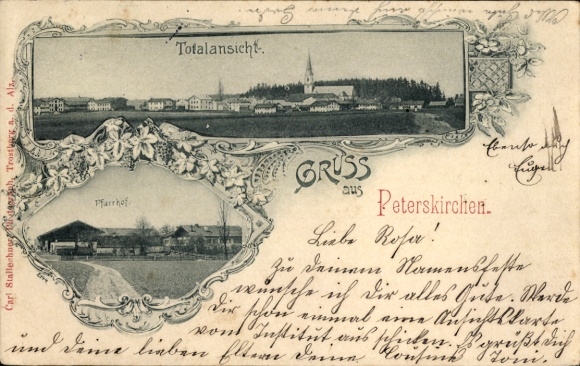 Totalansicht.
Gruss
aus
Peterskirchen.
Pfarrhof.
Carl Stallechner, Trostberg a. d. Alz.
Ebenso auch
Liebe Rosa!
Zu deinem Namensfeste
wünsche ich Dir alles Gute. Werde
Dir schon einmal eine Ansichtskarte
vom Institut aus schicken. Es grüßt Dich
und deine lieben Eltern deine Cousine Toni.